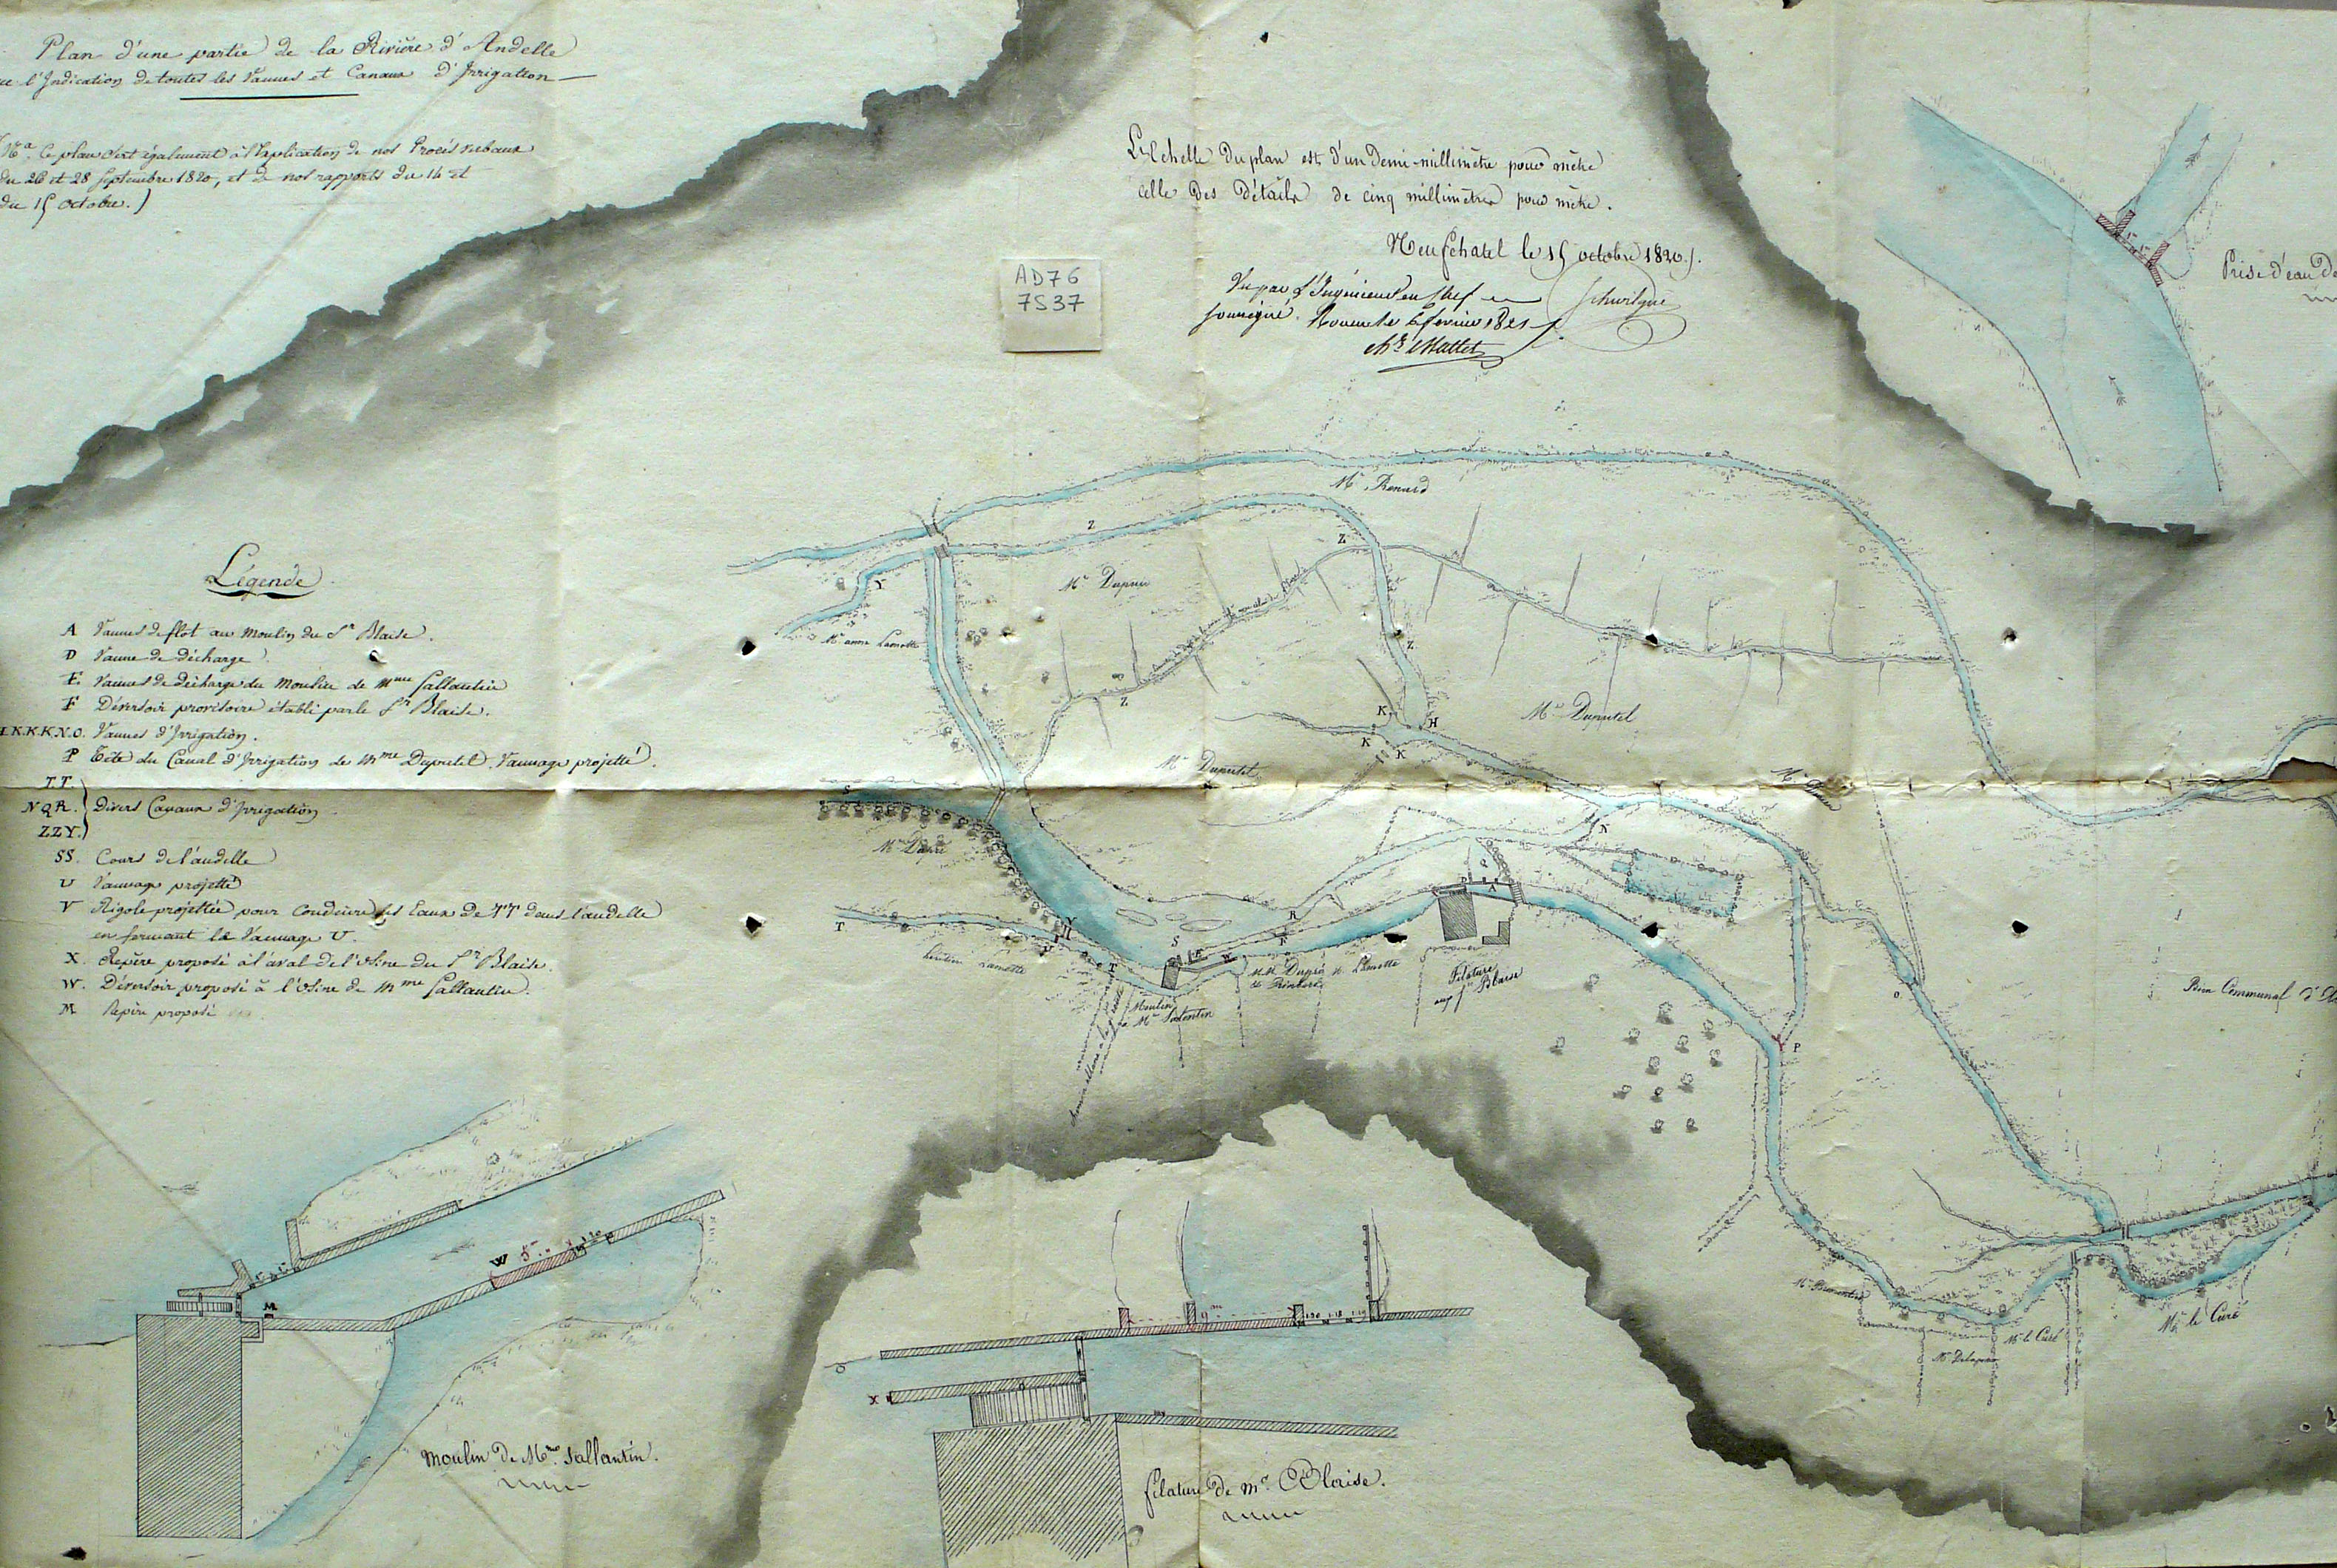 Plan d'une partie de la Rivière d'Andelle
l'Indication de toutes les Vannes et Canaux d'Irrigation
Nª. Ce plan sert également à l'aplication de nos Procès verbaux
du 26 et 28 Septembre 1820, et de nos rapports du 14 et
du 15 Octobre.)
L'Echelle du plan est d'un demi-millimètre pour mètre
celle des Détails de cinq millimètres pour mètre.
Neufchatel le 15 octobre 1820.
Vu par l'Ingénieur en Chef
soussigné. Rouen le 6 fevrier 1821
Schwilgué
Ch.er Mallet
AD76
7S37
Prise d'eau de
Légende
A Vannes de flot au Moulin du Sr Blaise.
D Vanne de décharge
E. Vannes de décharge du Moulin de Mme Sallantin
F Déversoir provisoire établi par le Sr Blaise.
I.K.K.K.N.O. Vannes d'Irrigation.
P Tête du Canal d'Irrigation de Mme Duputel. Vannage projetté.
T.T.
N.Q.R. Divers Canaux d'Irrigation
ZZY.
SS. Cours de l'andelle
U Vannage projetté
V Rigole projettée pour Conduire les Eaux de TT dans l'andelle
en fermant le Vannage U.
X. Repère proposé à l'aval de l'Usine du Sr Blaise.
W. Déversoir proposé à l'Usine de Mme Sallantin.
M Repère proposé
Mr Renard
Z
Z
Y
Mr Dupuis
Z
Z
K
H
K
K
Mr Duputel
Mr Duputel
S
Mr Dupré
N
Q
D
A
R
F
S
W
T
T
Lamotte
Moulin
à Mme Salentin
Filature
aux Srs Blaise
O
P
Bien Communal d'
Mr Delapierre
Mr le Curé
Mr le Curé
W
M
Moulin de Mme Sallantin.
X
filature de Mr Blaise.